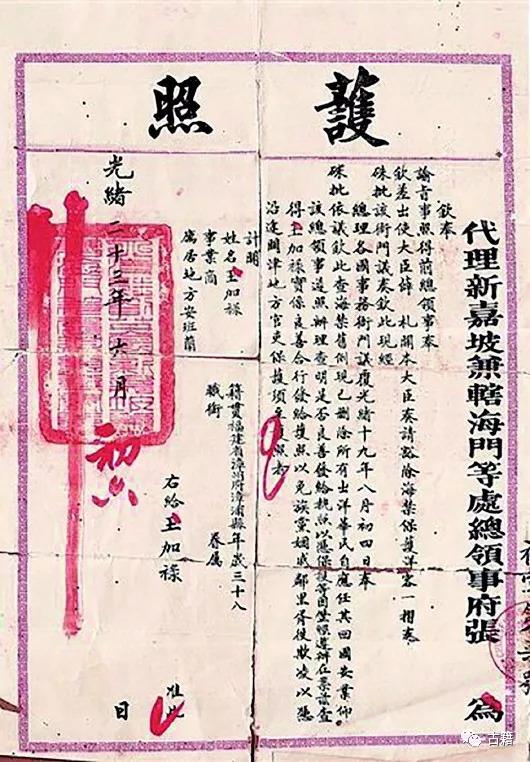 護照
代理新嘉坡兼轄海門等處總領事府張 為
欽奉
諭旨事照得前總領事奉
欽差出使大臣薛 札開本大臣奏請豁除海禁保護洋客一摺奉
硃批該衙門議奏欽此現經
總理各國事務衙門議覆光緒十九年八月初四日奉
硃批依議欽此查海禁舊例現已刪除所有出洋華民自應任其回國安業仰
該總領事遵照辦理查明是否良善發給執照以憑保護等因
得王加祿實係良善合行發給護照以免族黨姻戚鄰里胥役欺凌以憑
沿途關津地方官吏保護須至護照者
計開
姓名王加祿
籍貫福建省漳州府漳浦縣年歲三十八
事業商
職銜
眷屬
寓居地方安班蘭
右給王加祿
准此
光緒二十三年六月初六日
古籍